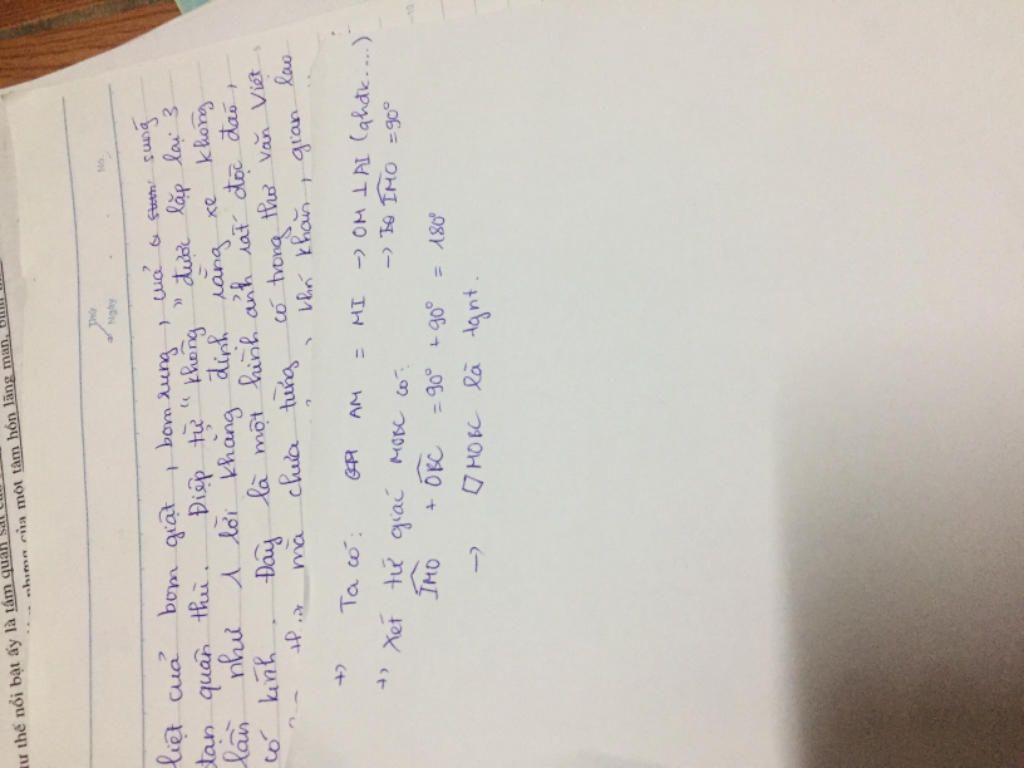 ư thế nổi bật ấy là tấm quan sát
của một tâm hồn lãng mạn,
Thứ
Ngày
No.
liệt của bom giật, bom rung, của súng
đạn quân thù. Điệp từ "không" được lặp lại 3
lần như 1 lời khẳng định rằng xe không
có kính. Đây là một hình ảnh rất độc đáo,
mà chưa từng có trong thơ văn Việt
khó khăn, gian lao
+) Ta có: AM = MI → OM ⊥ AI (qhđk....)
→ IMO = 90°
+) Xét tứ giác MOBC có:
IMO + OBC = 90° + 90° = 180°
→ □MOBC là tgnt.